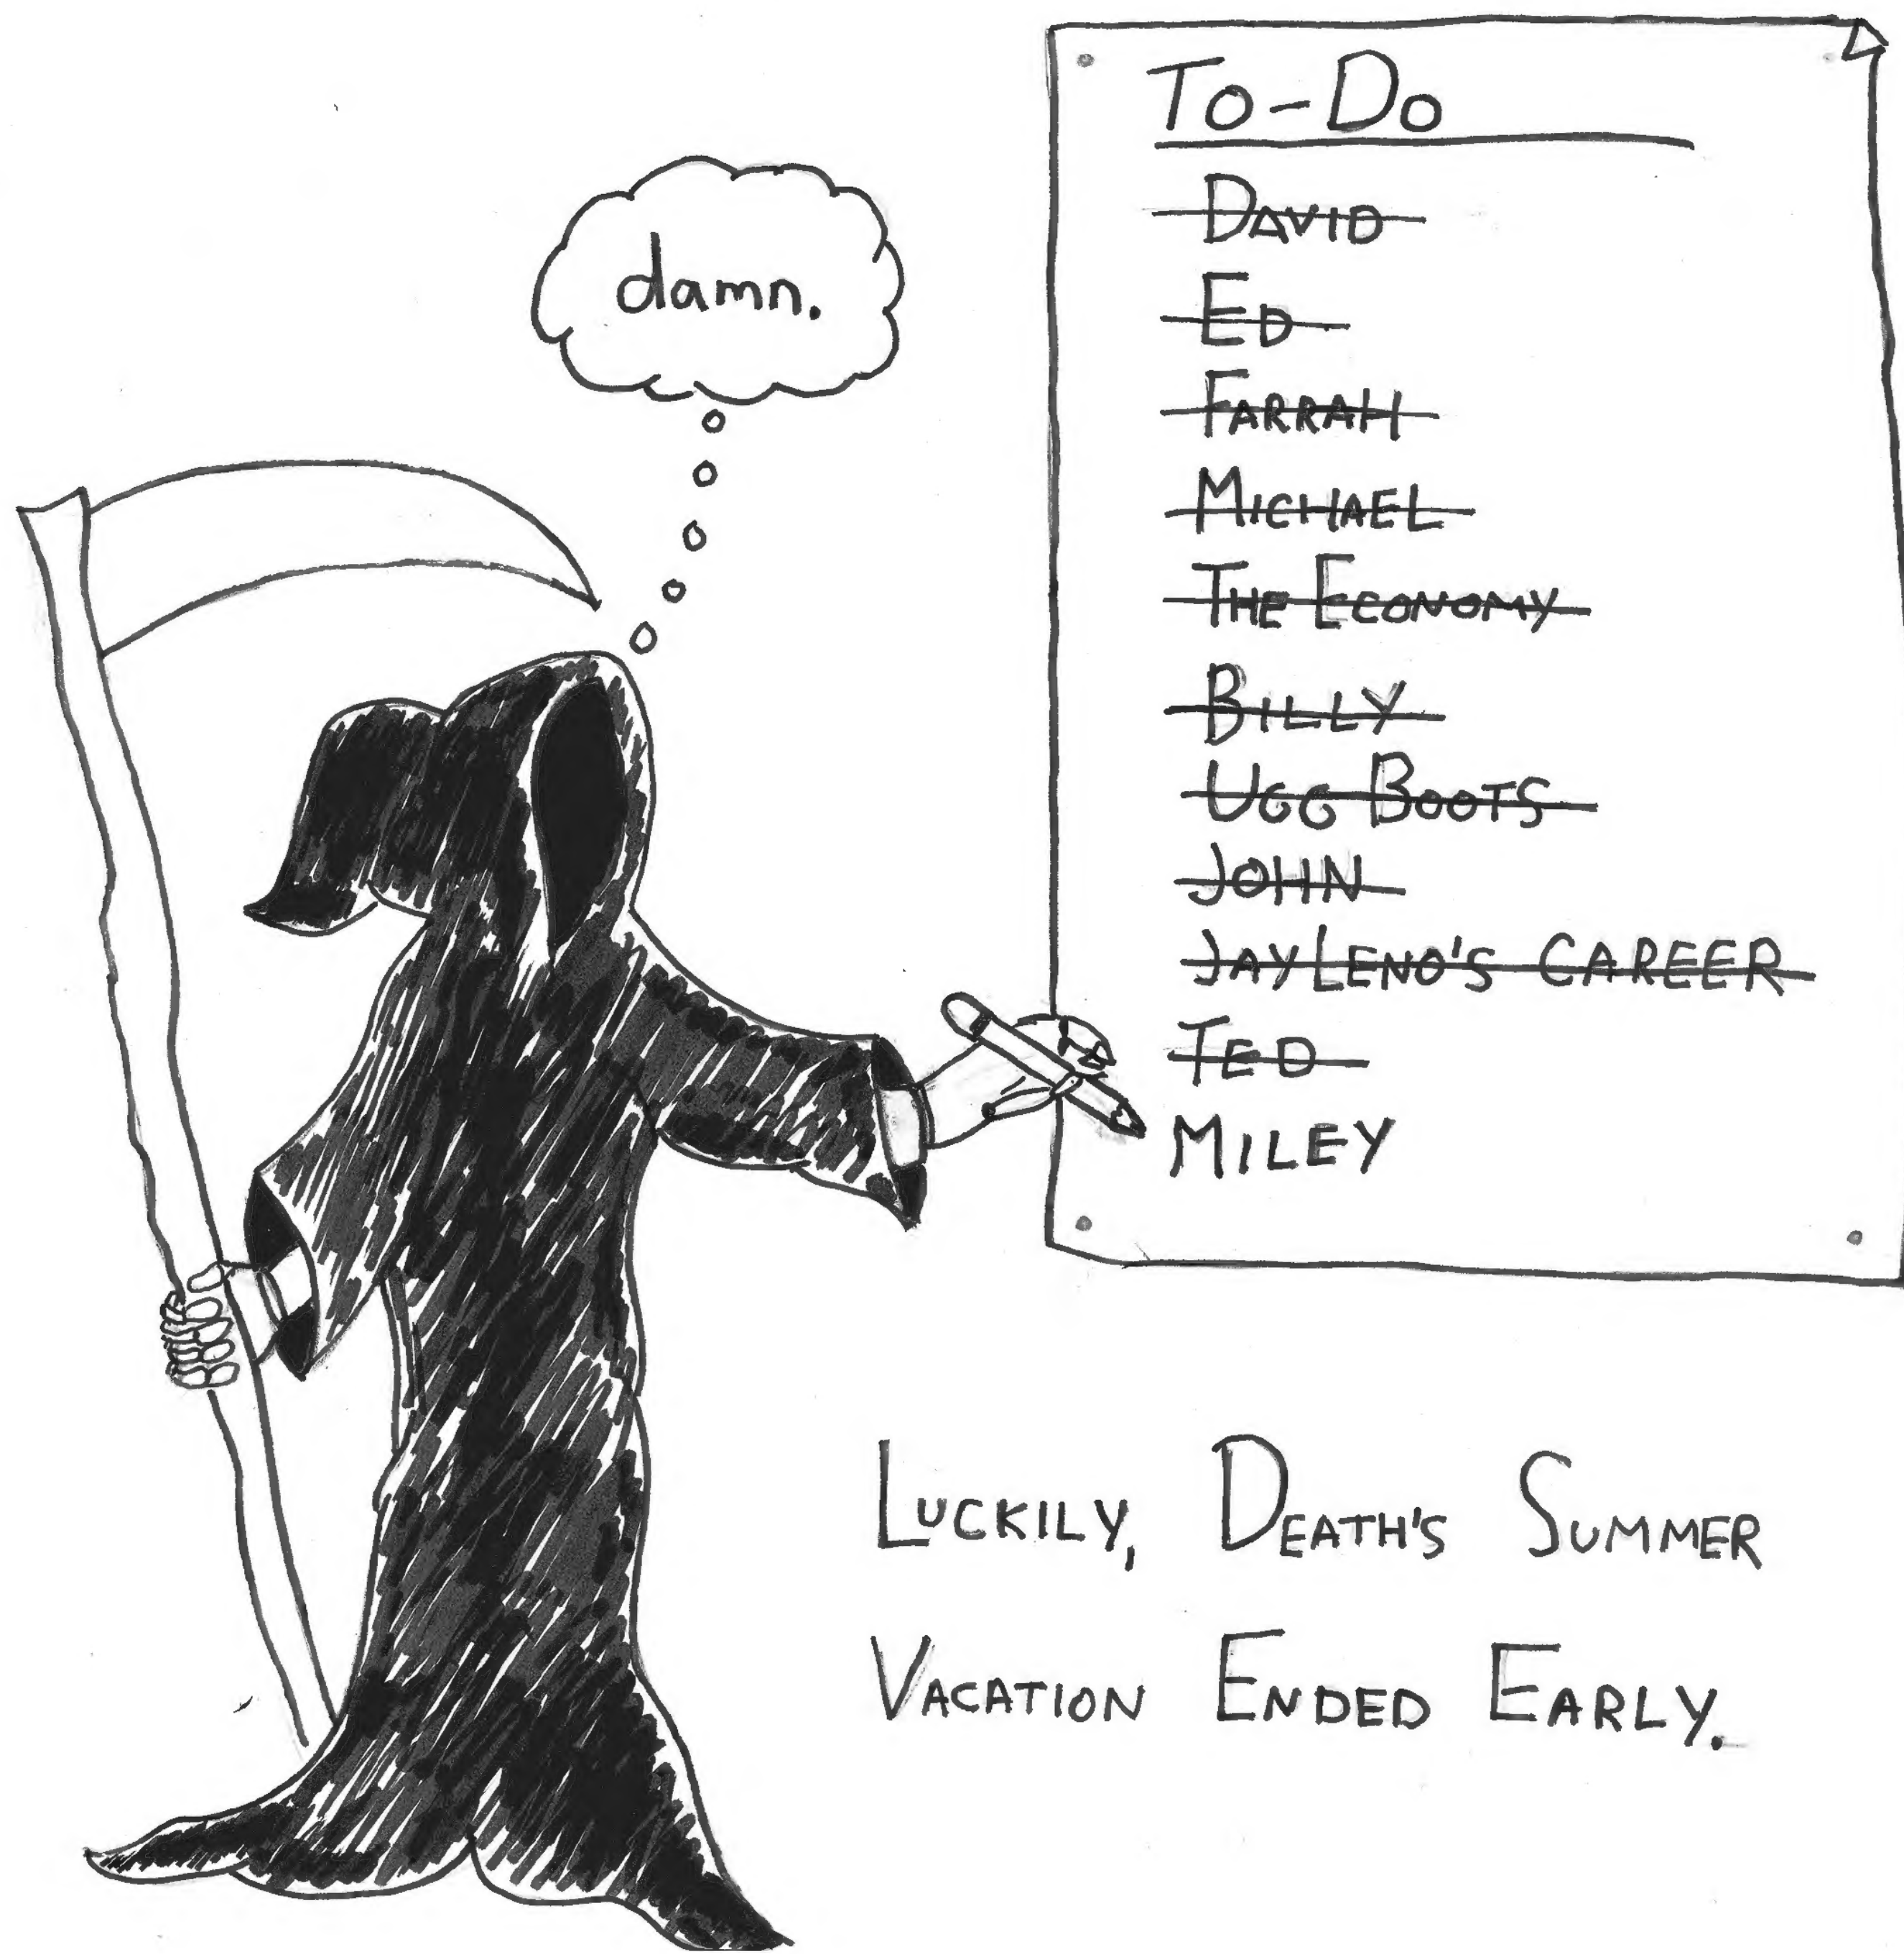 To-Do
DAVID
ED
FARRAH
MICHAEL
THE ECONOMY
BILLY
UGG BOOTS
JOHN
JAY LENO'S CAREER
TED
MILEY
damn.
LUCKILY, DEATH'S SUMMER
VACATION ENDED EARLY.